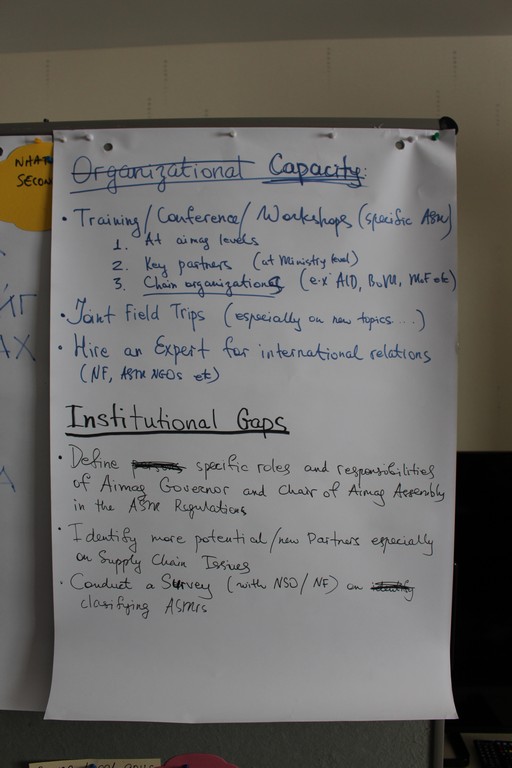 WHAT
SECON
Organizational Capacity:
• Training/Conference/Workshops (specific ASM)
1. At aimag levels
2. Key partners (at Ministry level)
3. Chain organizations (ex: AID, BoM, MoF etc)
• Joint Field Trips (especially on new topics...)
• Hire an Expert for international relations
(NF, ASM NGOs etc)
Institutional Gaps
• Define specific roles and responsibilities
of Aimag Governor and Chair of Aimag Assembly
in the ASM Regulations
• Identify more potential/new Partners especially
on Supply Chain Issues
• Conduct a Survey (with NSO/NF) on
classifying ASMrs